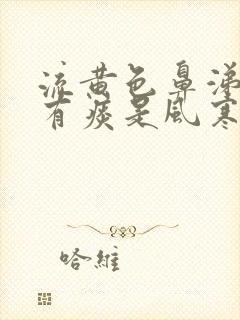 流黄色鼻涕
有痰是风寒
哈維